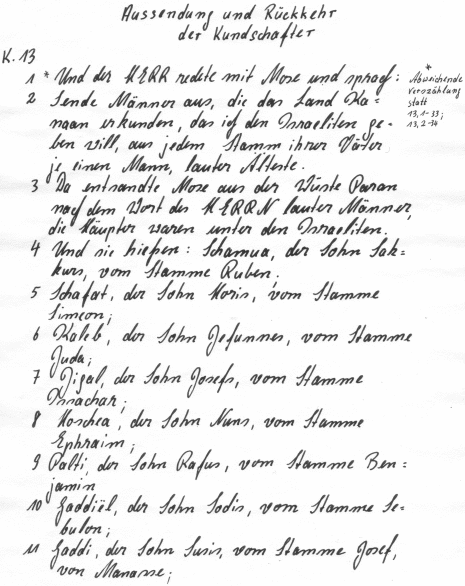 Aussendung und Rückkehr
der Kundschafter
K. 13
1 * Und der HERR redete mit Mose und sprach:
2 Sende Männer aus, die das Land Ka=
naan erkunden, das ich den Israeliten ge=
ben will, aus jedem Stamm ihrer Väter
je einen Mann, lauter Älteste.
3 Da entsandte Mose aus der Wüste Paran
nach dem Wort des HERRN lauter Männer,
die Häupter waren unter den Israeliten.
4 Und sie hießen: Schamua, der Sohn Sak=
kurs, vom Stamme Ruben.
5 Schafat, der Sohn Horis, vom Stamme
Simeon;
6 Kaleb, der Sohn Jefunnes, vom Stamme
Juda;
7 Jigal, der Sohn Josefs, vom Stamme
Issachar;
8 Hoschea, der Sohn Nuns, vom Stamme
Ephraim;
9 Palti, der Sohn Rafus, vom Stamme Ben=
jamin
10 Gaddiël, der Sohn Sodis, vom Stamme Se=
bulon;
11 Gaddi, der Sohn Susis, vom Stamme Josef,
von Manasse;
*
Abweichende
Verszählung
statt
13,1-33;
13,2-34